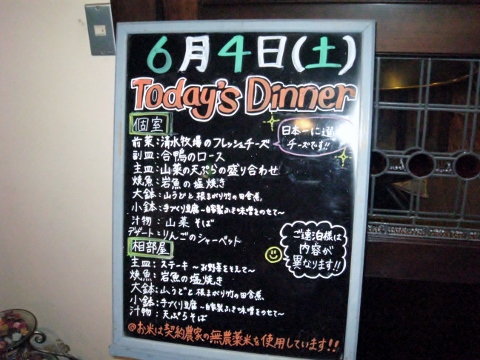 6月4日(土)
Today's Dinner
個室
前菜:清水牧場のフレッシュチーズ
日本一に選
チーズです!!
副皿:合鴨のロース
主皿:山菜の天ぷらの盛り合わせ
焼魚:岩魚の塩焼き
大鉢:山うどと根まがり竹の田舎煮
小鉢:手づくり豆腐~自家製ふき味噌をのせて~
汁物:山菜そば
デザート:りんごのシャーベット
ご連泊様は
内容が
異なります!!
相部屋
主皿:ステーキ~お野菜をそえて~
焼魚:岩魚の塩焼き
大鉢:山うどと根まがり竹の田舎煮
小鉢:手づくり豆腐~自家製ふき味噌をのせて~
汁物:天ぷらそば
@お米は契約農家の無農薬米を使用しています!!